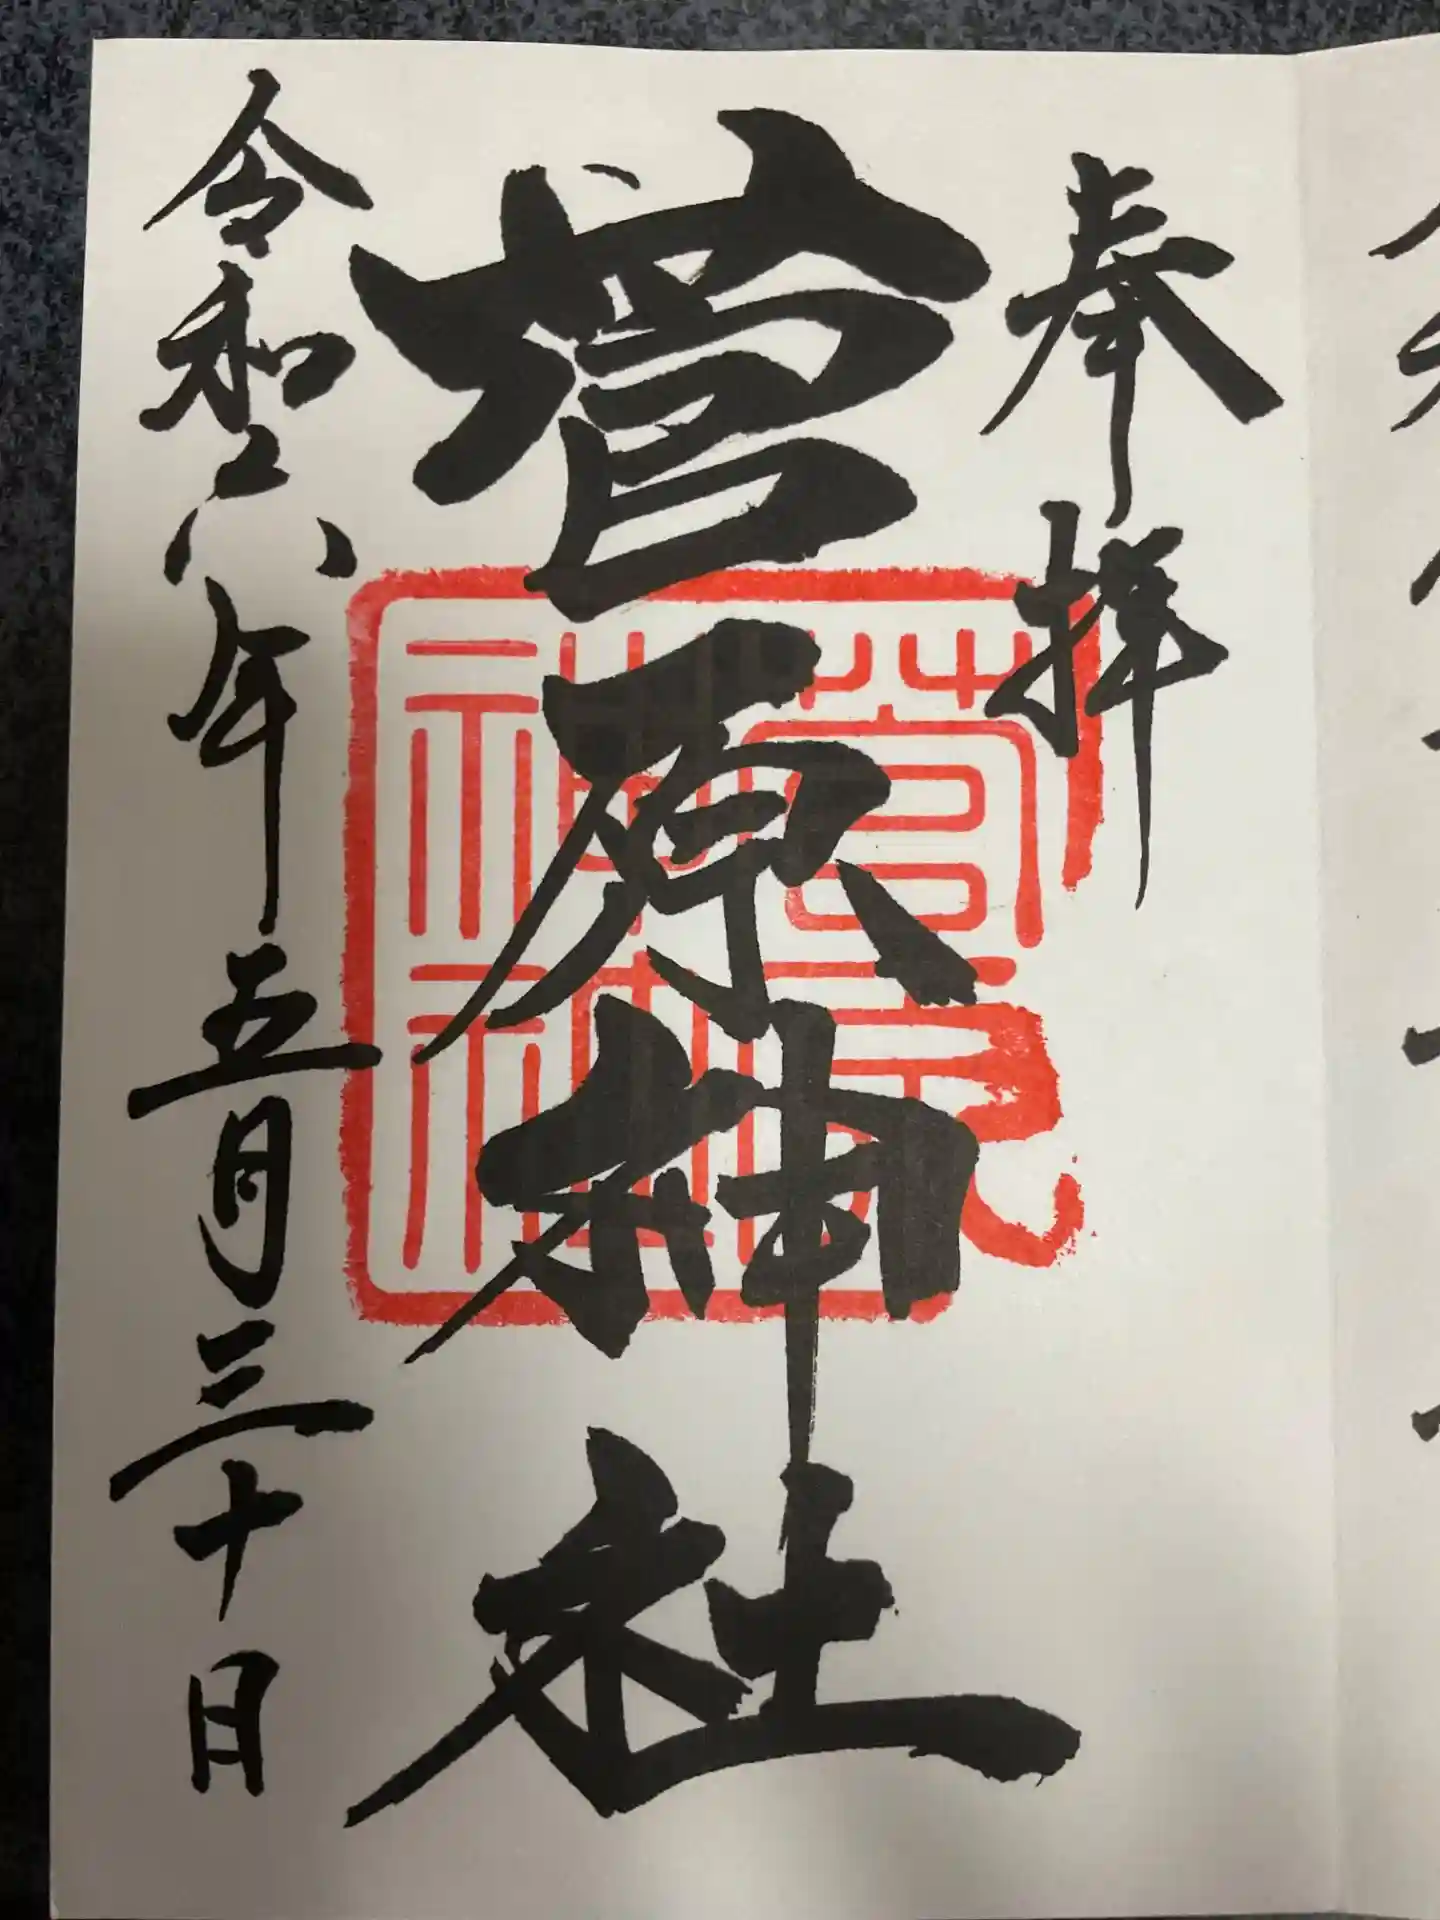 奉拝
菅原神社
菅原神社
令和八年五月三十日